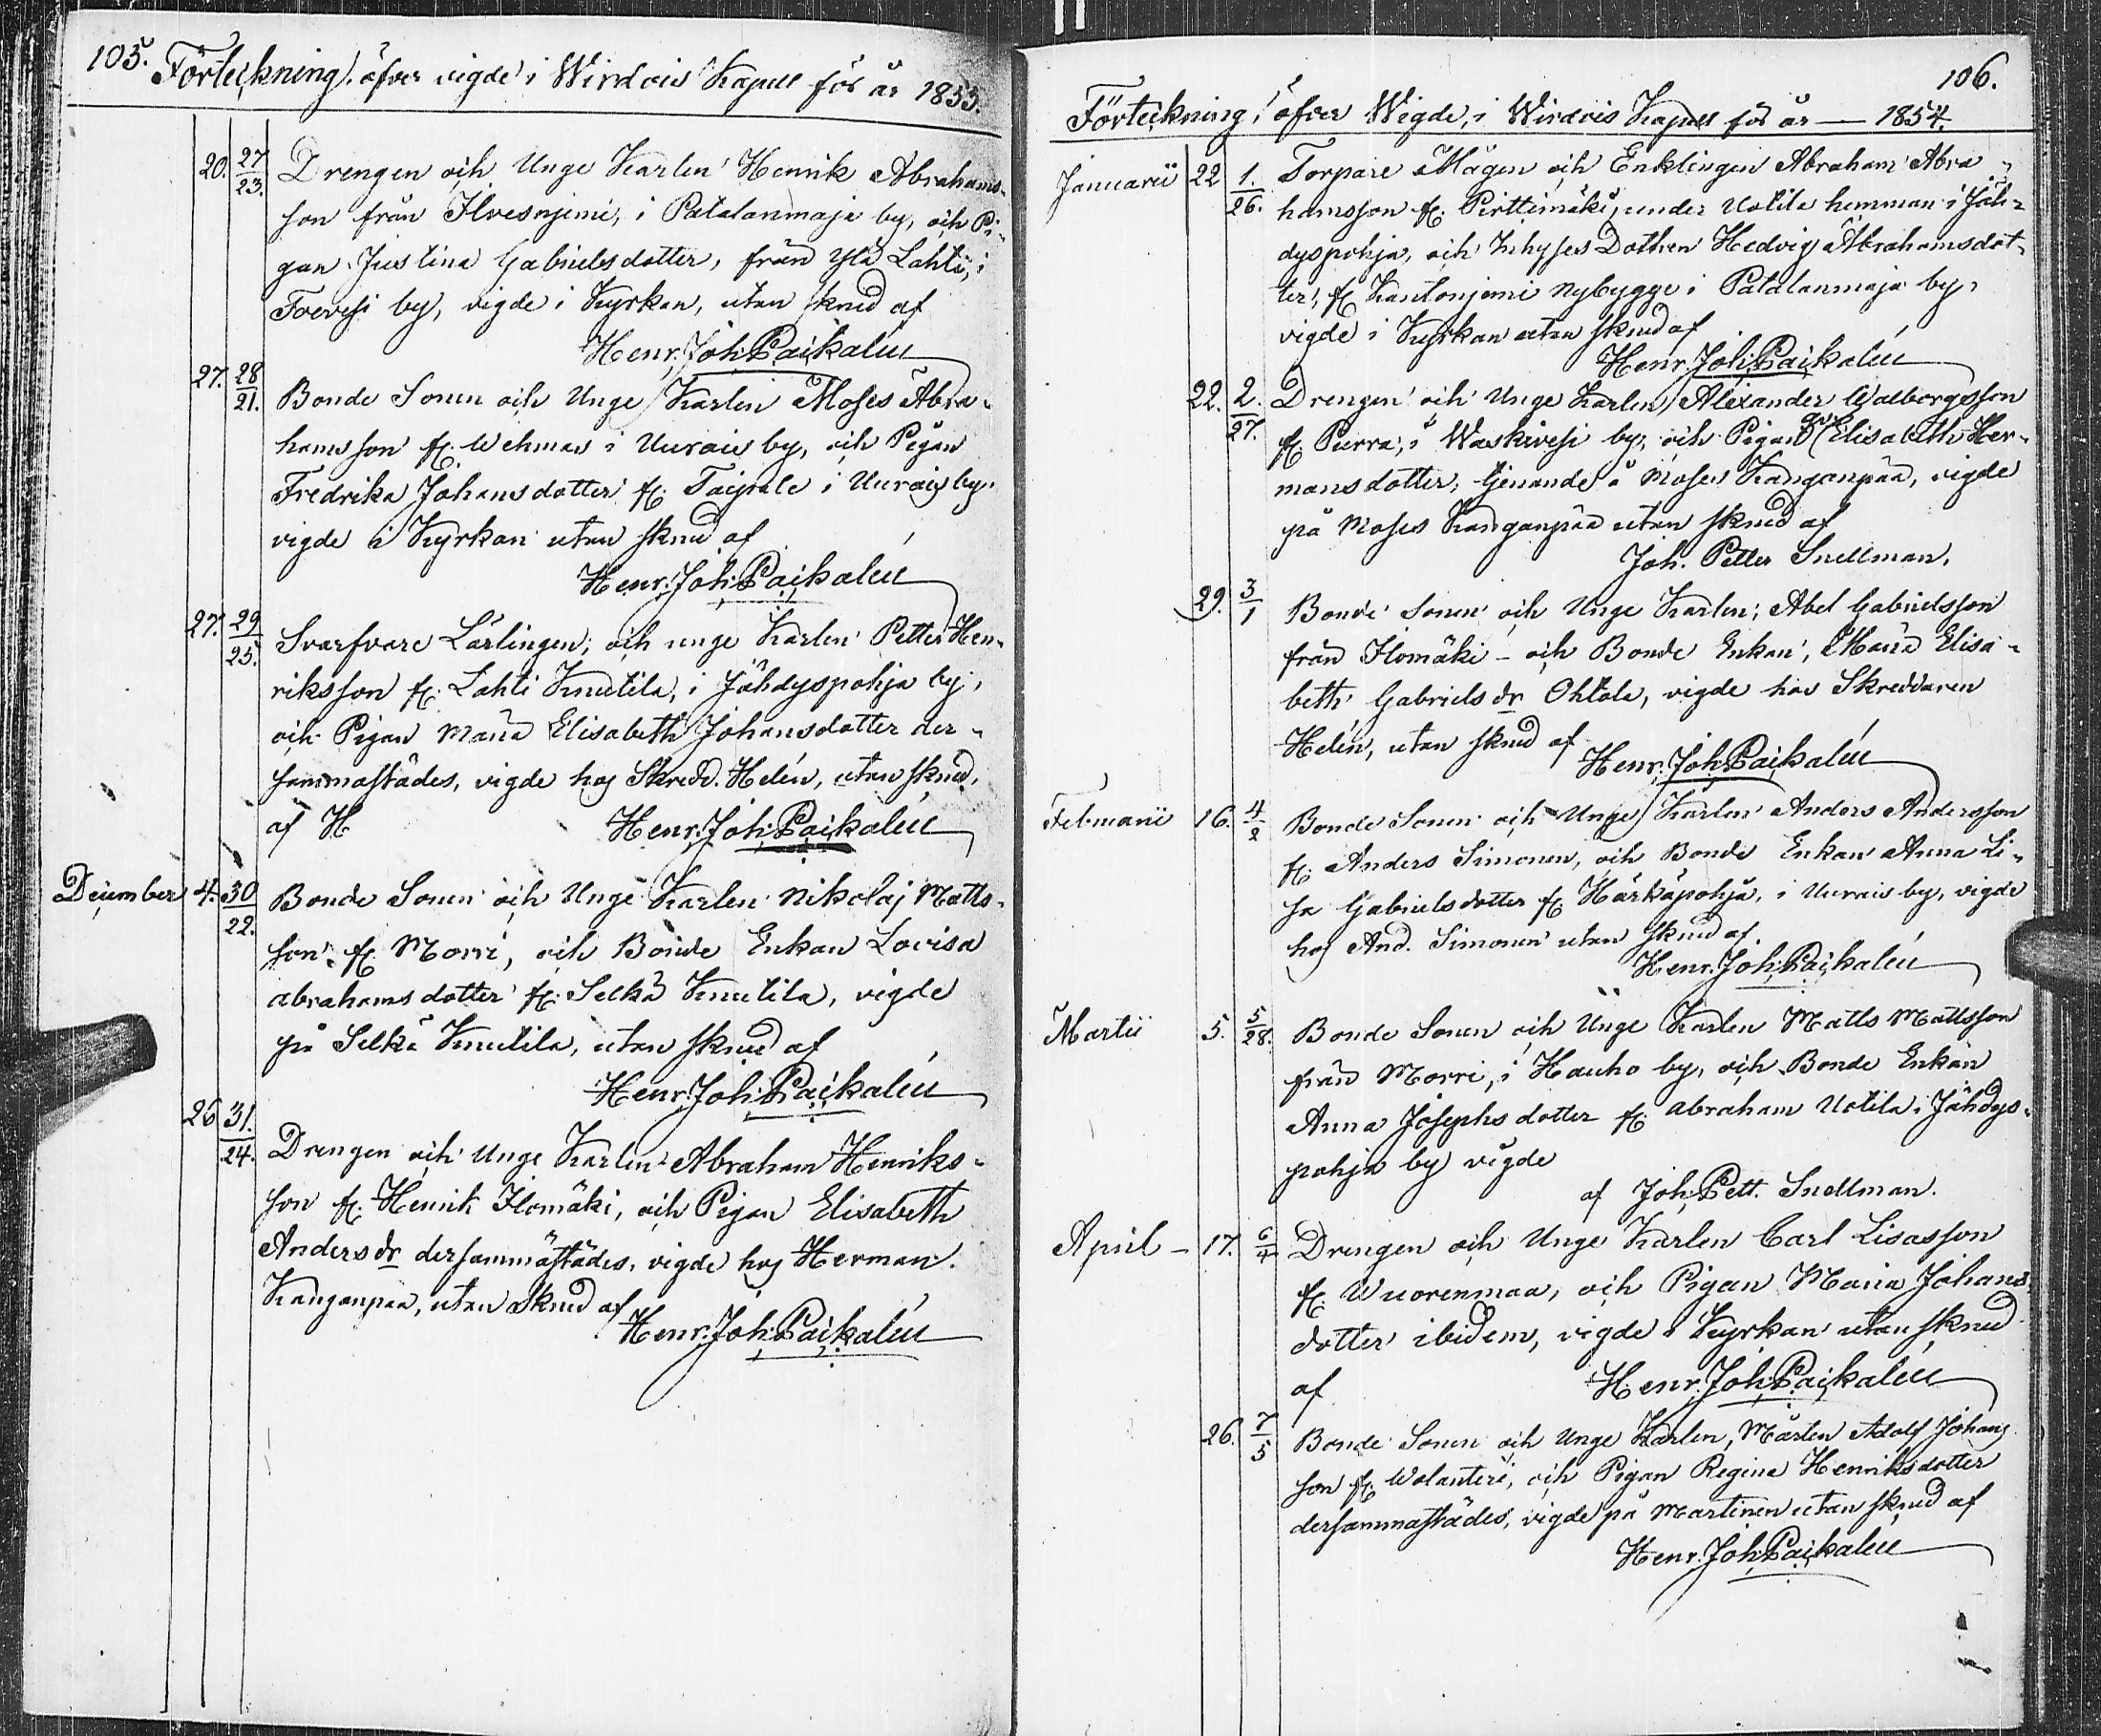 105. Förteckning, öfver vigde i Wirdois Kapell för år 1853.
20. 27/23. Drengen och Unge Karlen Henrik Abrahams-
son från Ilvesnjemi, i Patalanmaja by, och Pi-
gan Justina Gabrielsdotter, från Ylä Lahti, i
Toevesi by, vigde i Kyrkan, utan skrud af
Henr. Joh. Paikalén
27. 28/21. Bonde Sonen och Unge Karlen Moses Abra-
hamsson fr. Wehmas i Uurais by, och Pigan
Fredrika Johansdotter fr. Taipale i Uurais by.
vigde i Kyrkan utan skrud af
Henr. Joh. Paikalén
27. 29/25. Svarfvare Lärlingen, och unge Karlen Petter Hen-
riksson fr. Lahti Knutila, i Jähdyspohja by,
och Pigan Maria Elisabeth Johansdotter der-
sammastädes, vigde hos Skredd. Helén, utan skrud,
af H Henr. Joh. Paikalén
December 4. 30/22. Bonde Sonen och Unge Karlen Nikolaj Matts-
son fr. Morri, och Bonde Enkan Lovisa
Abrahamsdotter fr. Selkä Knutila, vigde
på Selkä Knutila, utan skrud af
Henr. Joh. Paikalén
26 31./24. Drengen och Unge Karlen Abraham Henriks-
son fr. Henrik Ilomäki, och Pigan Elisabeth
Andersdr dersammastädes, vigde hos Herman
Kanganpää, utan skrud af
Henr. Joh. Paikalén
106.
Förteckning, öfver Wigde, i Wirdois Kapell för år — 1854.
Januarii 22 1./26. Torpare Mågen och Enklingen Abraham Abra-
hamsson fr. Pirttimäki, under Uotila hemman i Jäh-
dyspohja, och Inhyses Dottren Hedvig Abrahamsdot-
ter, fr. Kantonjemi Nybygge i Patalanmaja by,
vigde i Kyrkan utan skrud af
Henr. Joh. Paikalén
22. 2./27. Drengen och Unge Karlen Alexander Walborgsson
fr. Purra, i Waskivesi by, och Pigan Elisabeth Her-
mansdotter, tjenande å Moses Kanganpää, vigde
på Moses Kanganpää utan skrud af
Joh. Petter Snellman.
29. 3/1 Bonde Sonen och Unge Karlen, Abel Gabrielsson
från Ilomäki - och Bonde Enkan, Maria Elisa-
beth Gabriels dr Ohtola, vigde hos Skreddaren
Helén, utan skrud af
Henr. Joh. Paikalén
Februarii 16. 4/2 Bonde Sonen och Unge Karlen Anders Andersson
fr. Anders Simonen, och Bonde Enkan Anna Li-
sa Gabrielsdotter fr. Härkäpohja, i Uurais by, vigde
hos And. Simonen utan skrud af
Henr. Joh. Paikalén
Martii 5. 5/28. Bonde Sonen och Unge Karlen Matts Mattsson
från Morri, i Hauho by, och Bonde Enkan
Anna Josephsdotter fr. Abraham Uotila i Jähdys-
pohja by vigde
af Joh. Pett. Snellman.
April — 17. 6/4 Drengen och Unge Karlen Carl Lisasson
fr. Wuorenmaa, och Pigan Maria Johans-
dotter ibidem, vigde i Kyrkan utan skrud
af Henr. Joh. Paikalén
26. 7/5 Bonde Sonen och Unge Karlen, Mårten Adolf Johans
son fr. Wolanteri, och Pigan Regina Henriksdotter
dersammastädes, vigde på Martinen utan skrud af
Henr. Joh. Paikalén